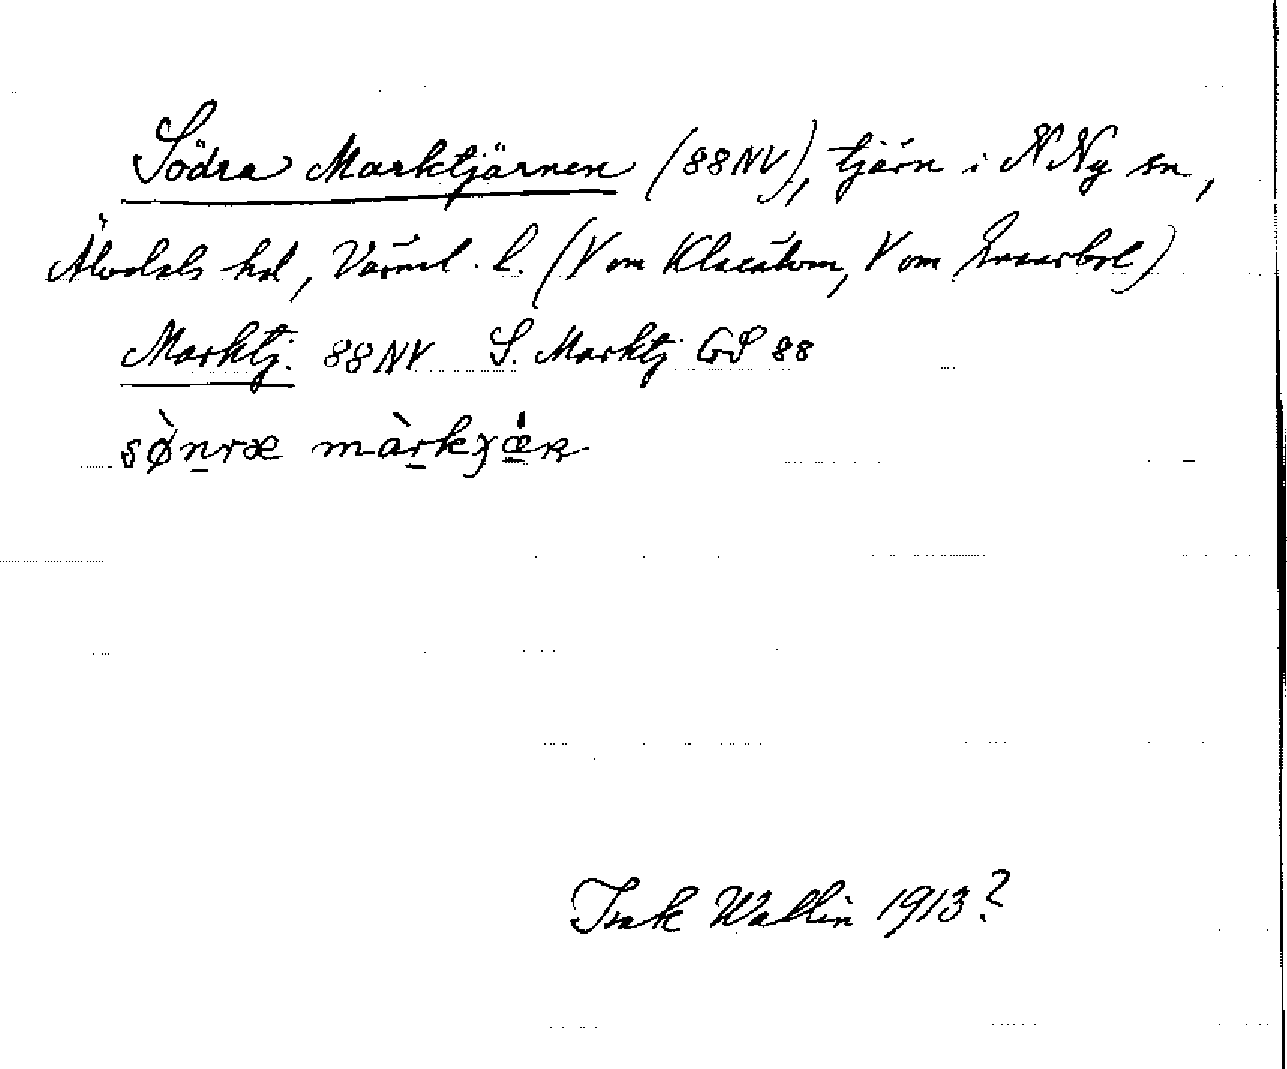 Södra Marktjärnen (88NV), tjärn i N Ny sn,
Älvdals hd, Värml. l. (V om Klarälven, V om
Marktj. 88NV S. Marktj GS 88
sø̀n̠ræ màr̠kȷæ̠̀ʀ
Isak Wallin 1913?